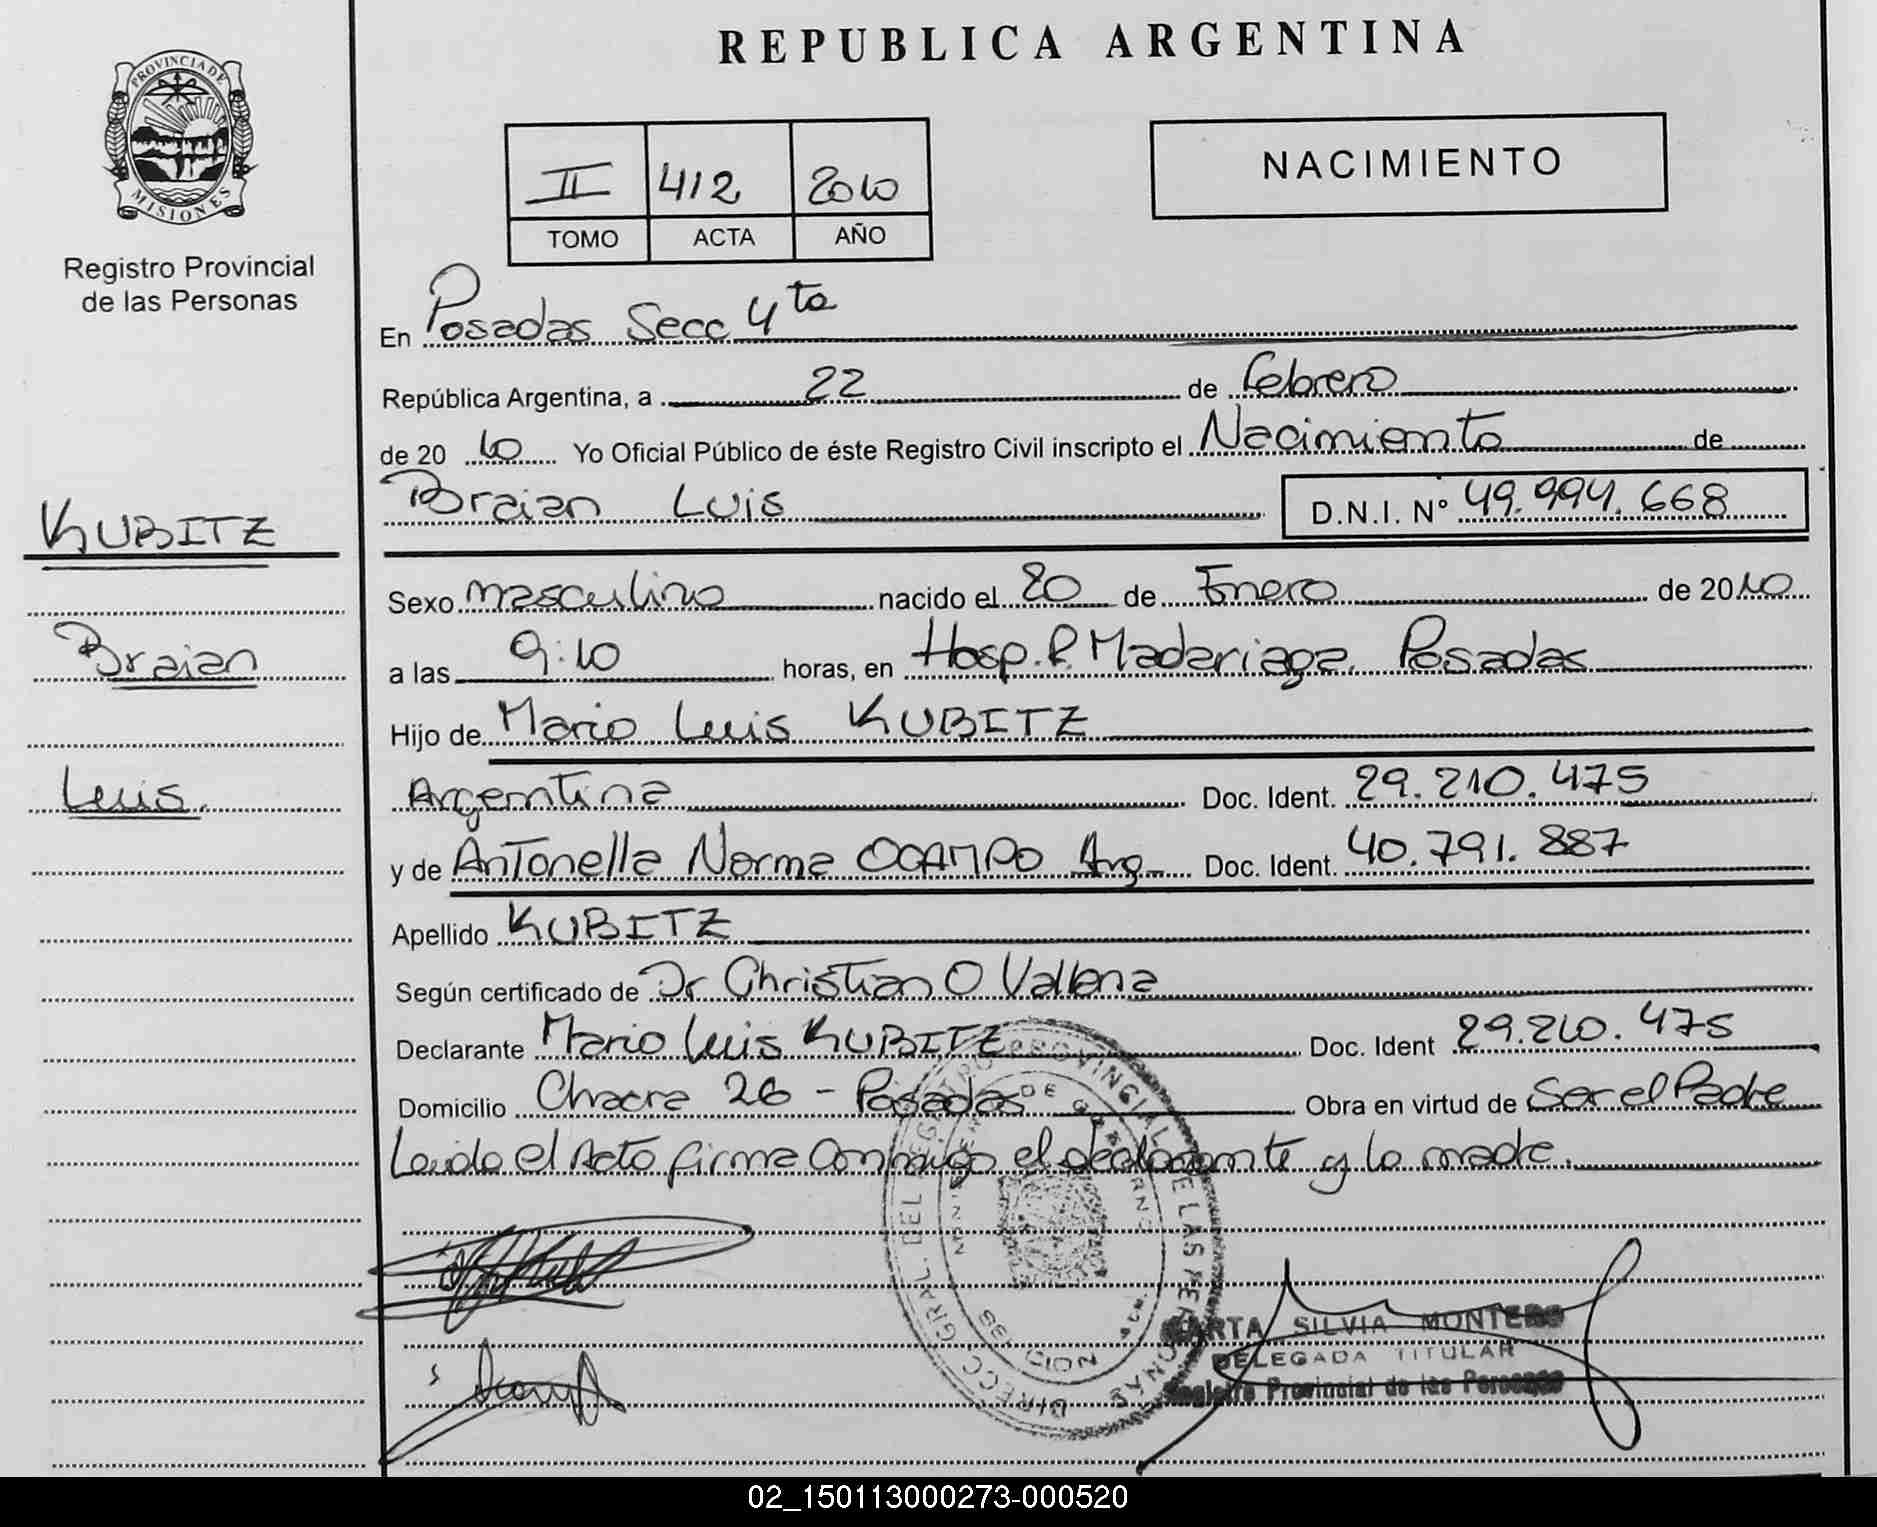 REPUBLICA ARGENTINA
PROVINCIA DE
MISIONES
Registro Provincial
de las Personas
II 412 2010
TOMO ACTA AÑO
NACIMIENTO
En Posadas Secc 4ta
República Argentina, a 22 de febrero
de 20 10 Yo Oficial Público de éste Registro Civil inscripto el Nacimiento de
Braian Luis D.N.I. N° 49.994.668
KUBITZ
Braian
Luis.
Sexo masculino nacido el 20 de Enero de 2010
a las 9:10 horas, en Hosp. R. Madariaga. Posadas
Hijo de Mario Luis KUBITZ
Argentina Doc. Ident. 29.210.475
y de Antonella Norma OCAMPO Arg. Doc. Ident. 40.791.887
Apellido KUBITZ
Según certificado de Dr Christian O
Declarante Mario Luis KUBITZ Doc. Ident 29.210.475
Domicilio Chacra 26 - Posadas Obra en virtud de Ser el Padre
Leido el Acto firma conmigo el declarante y la madre.
DIRECC. GRAL. DEL REGISTRO PROVINCIAL DE LAS PERSONAS
MARTA SILVIA MONTERO
DELEGADA TITULAR
Registro Provincial de las Personas
02_150113000273-000520